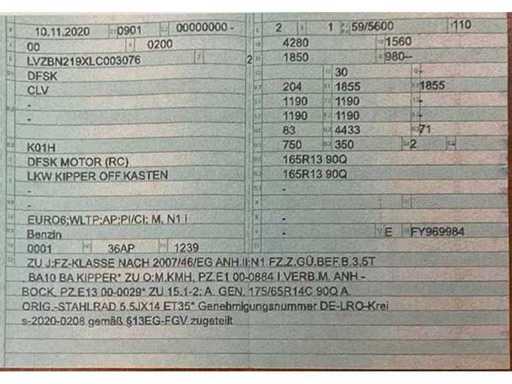 10.11.2020 0901 00000000 - 2 1 59/5600 110
00 0200 4280 1560
LVZBN219XLC003076 2 1850 980--
DFSK 30 -
CLV 204 1855 1855
- 1190 1190 -
- 1190 1190 -
83 4433 71
K01H 750 350 2 -
DFSK MOTOR (RC) 165R13 90Q
LKW KIPPER OFF.KASTEN 165R13 90Q
- -
EURO6;WLTP;AP;PI/CI; M, N1 I -
Benzin - E FY969984
0001 36AP 1239 -
ZU J:FZ-KLASSE NACH 2007/46/EG ANH.II:N1 FZ.Z.GÜ.BEF.B.3,5T
, BA10 BA KIPPER* ZU O:M.KMH, PZ.E1 00-0884 I.VERB.M. ANH.-
BOCK, PZ.E13 00-0029* ZU 15.1-2: A. GEN. 175/65R14C 90Q A.
ORIG.-STAHLRAD 5.5JX14 ET35* Genehmigungsnummer DE-LRO-Krei
s-2020-0208 gemäß §13EG-FGV zugeteilt